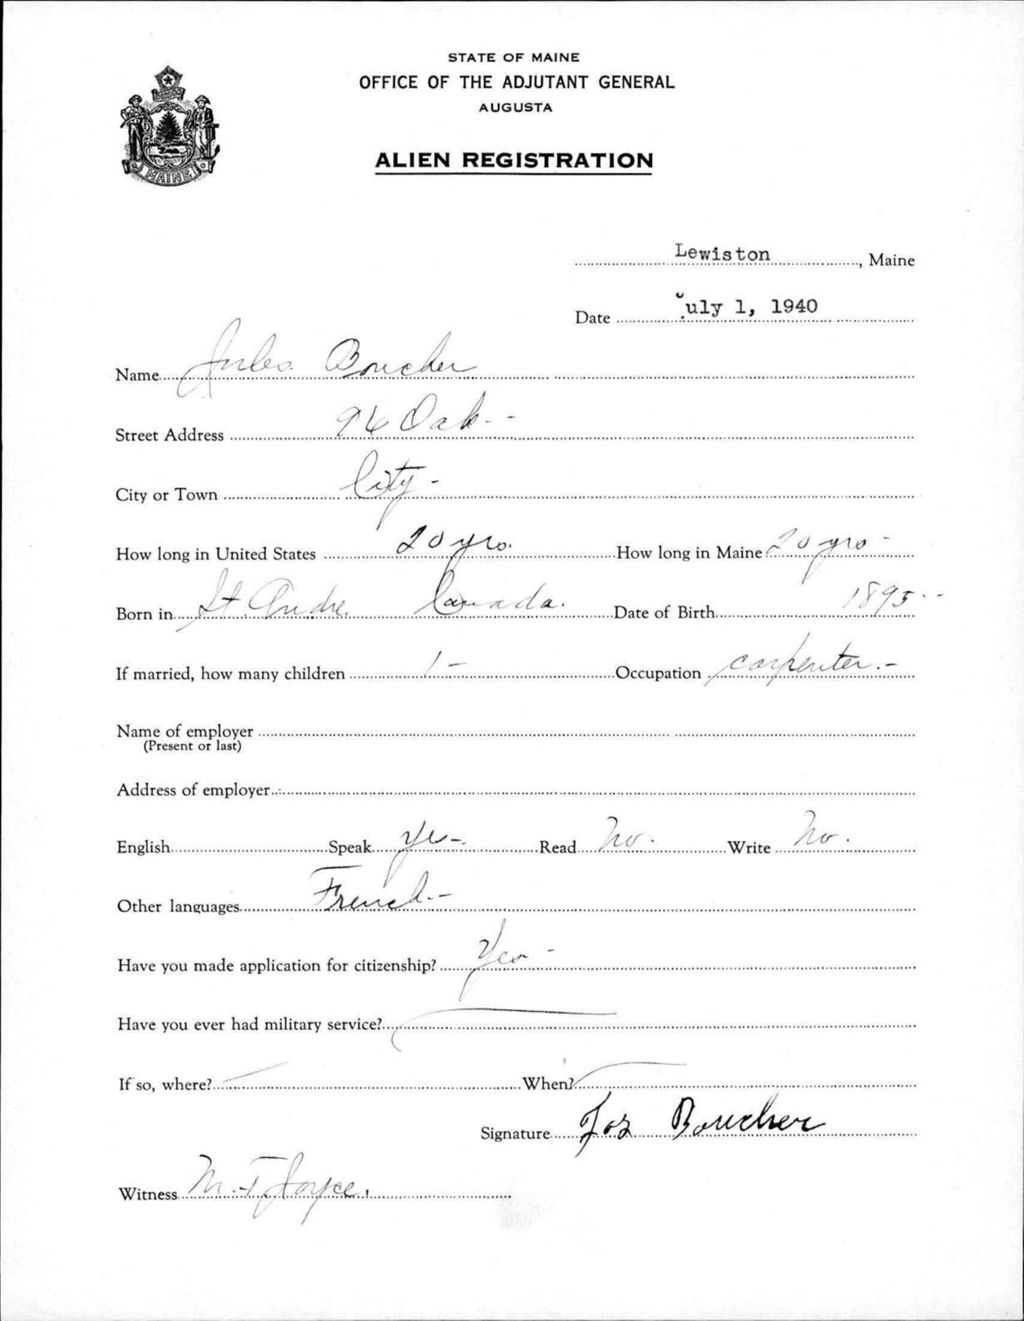 STATE OF MAINE
OFFICE OF THE ADJUTANT GENERAL
AUGUSTA
ALIEN REGISTRATION
MAINE
Lewiston, Maine
Date July 1, 1940
Name Jules Boucher
Street Address 96 Oak -
City or Town City -
How long in United States 20 yrs. How long in Maine 20 yrs -
Born in St. Andre. Canada. Date of Birth 1895 -
If married, how many children 1 - Occupation carpenter. -
Name of employer
(Present or last)
Address of employer
English Speak Yes - Read No. Write No.
Other languages French -
Have you made application for citizenship? Yes -
Have you ever had military service?
If so, where? When?
Signature Boucher
Witness M. T. Joyce.